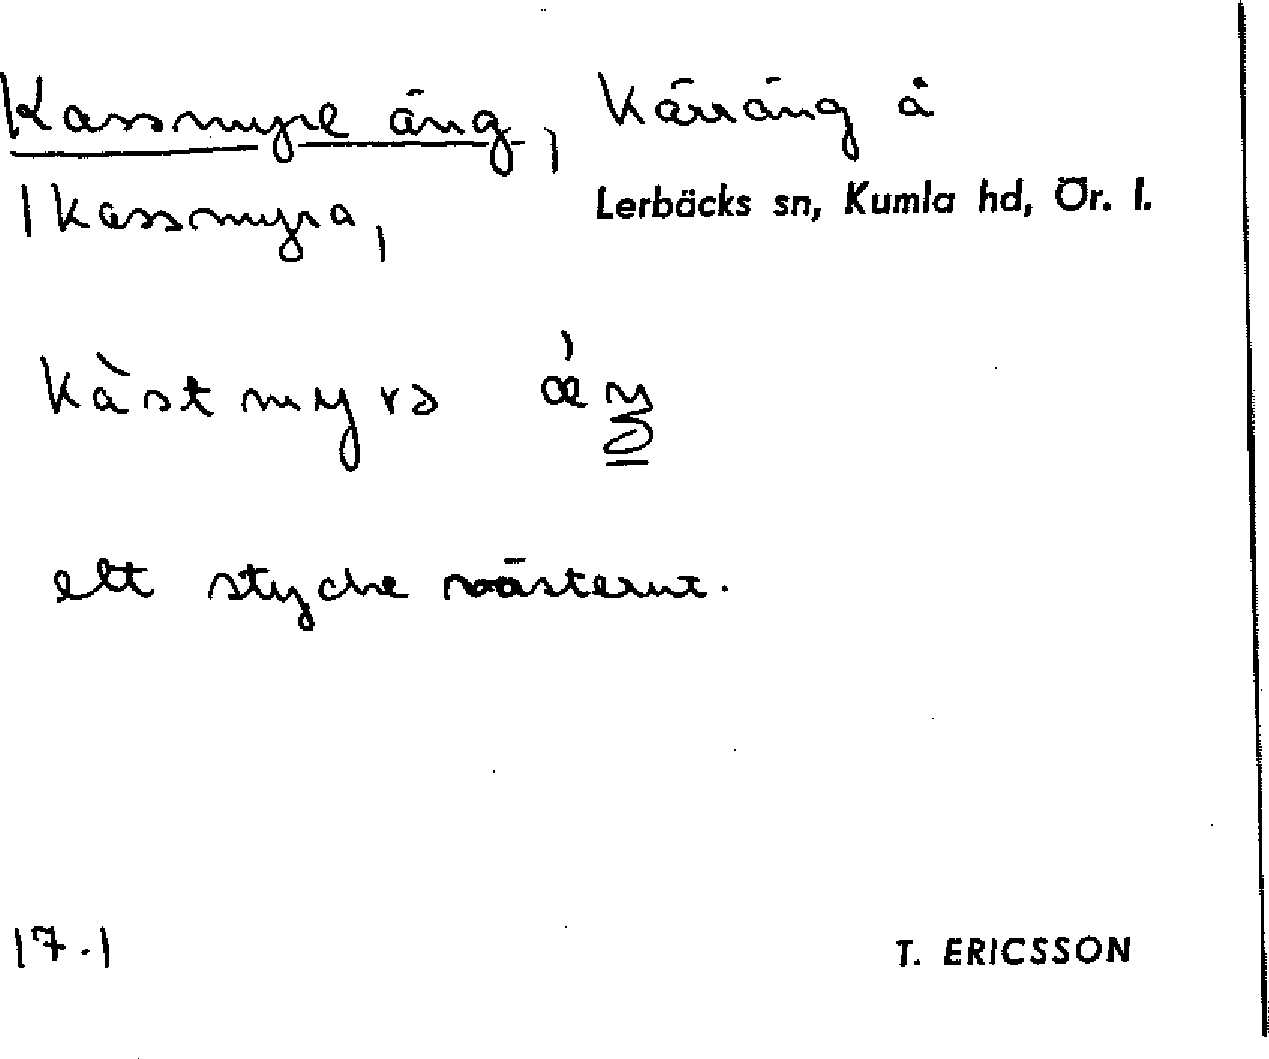 Kassmyre äng, Kärräng å
|Kassmyra, Lerbäcks sn, Kumla hd, Ör. l.
Kàstmyrə
ett stycke västerut.
17.1 T. ERICSSON